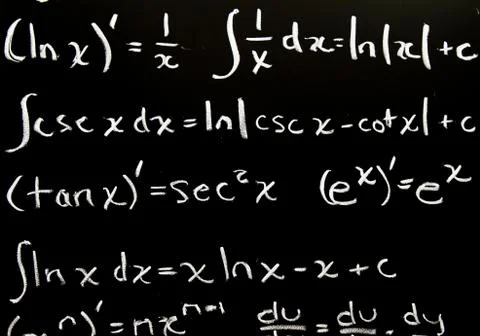 (ln x)' = 1/x ∫ 1/x dx = ln|x| + c
∫csc x dx = ln|csc x - cot x| + c
(tan x)' = sec²x (eˣ)' = eˣ
∫ln x dx = x ln x - x + c
(xⁿ)' = nxⁿ⁻¹ du = du . dy